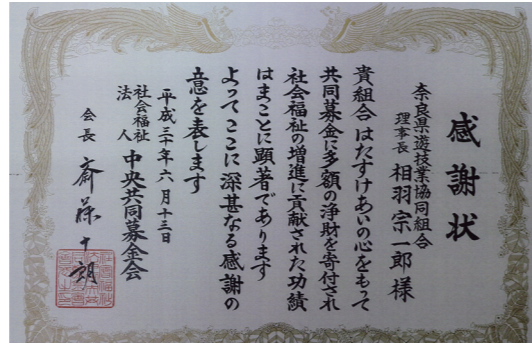 感謝状
奈良県遊技業協同組合
理事長 相羽宗一郎 様
貴組合はたすけあいの心をもって
共同募金に多額の浄財を寄付され
社会福祉の増進に貢献された功績
はまことに顕著であります
よってここに深甚なる感謝の
意を表します
平成三十年六月十三日
社会福祉法人 中央共同募金会
会長 斎藤十朗